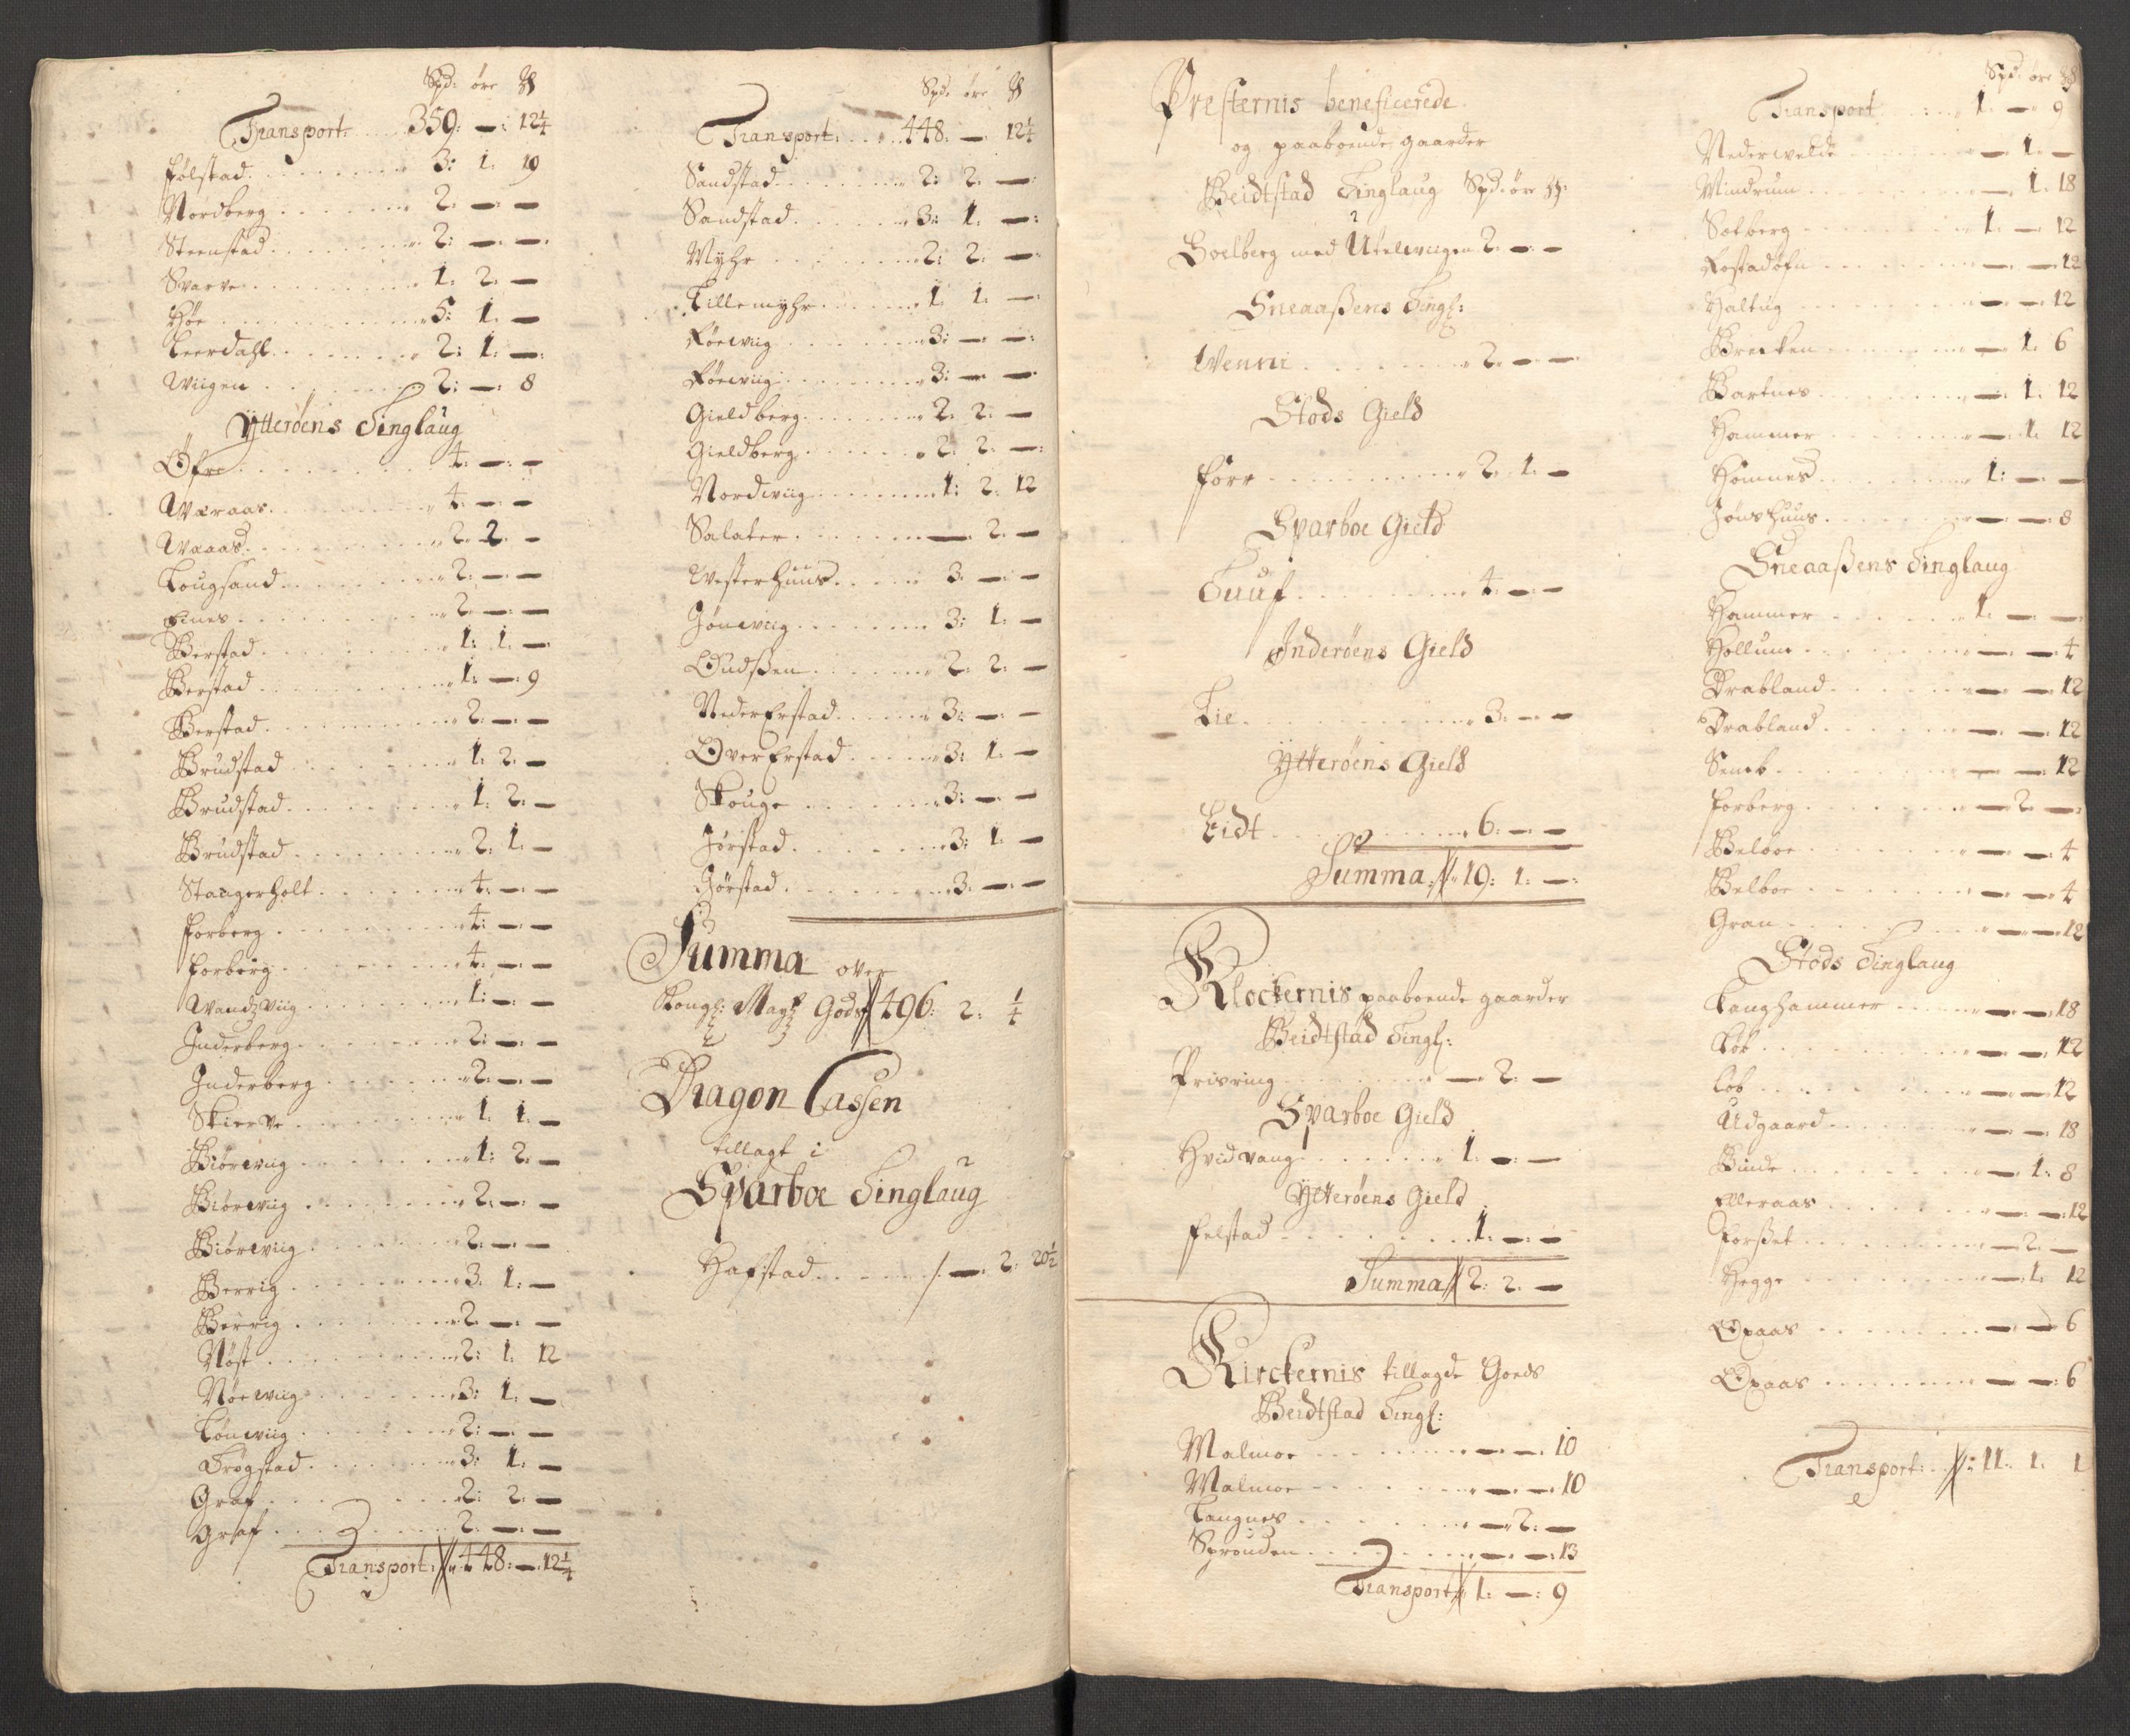 Spd: öre ℔
Transport: 359: —: 12¼
Følstad 3: 1: 19
Nordberg 2: — —
Steenstad 2: — —
Svarve 1: 2: —
Höe 5: 1: —
Leerdahl 2: 1: —
Wiigen 2: —: 8
Ytterøens Tinglaug
Öfre 4: —: —
Wæraas 4: — —
Waaas 2: 2: —
Tougsand 2: — —
Eines 2: — —
Berstad 1: 1: —
Berstad 1: —: 9
Berstad 2: — —
Brudstad 1: 2: —
Brudstad 1: 2: —
Brudstad 2: 1: —
Staagerholt 4: — —
Forberg 4: — —
Forberg 4: — —
Wandzviig 1: — —
Inderberg 2: — —
Inderberg 2: — —
Skierve 1: 1: —
Biörwiig 1: 2: —
Biörwiig 2: — —
Biörwiig 2: — —
Berrig 3: 1: —
Berrig 2: — —
Nöst 2: 1: 12
Nörwiig 3: 1: —
Lönwiig 2: — —
Trögstad 3: 1: —
Graf 2: 2: —
Graf 2: — —
Transport: 448: —: 12¼
Spd: öre ℔
Transport: 448: —: 12¼
Sandstad 2: 2: —
Sandstad 3: 1: —
Myhr 2: 2: —
Lillemyhr 1: 1: —
Röewiig 3: — —
Röewiig 3: — —
Gieldberg 2: 2: —
Gieldberg 2: 2: —
Nordwiig 1: 2: 12
Salater — 2: —
Westerhuus 3: — —
Jönwiig 3: 1: —
Oudszen 2: 2: —
Neder Erstad 3: — —
Over Erstad 3: 1: —
Skouge 3: — —
Jörstad 3: 1: —
Jörstad 3: — —
Summa over
Kongl: Mayt Gods 496: 2: ¼
Dragon Cassen
tillagt i
Sparboe Tinglaug
Hafstad — 2: 20½
Presternis beneficerede
og paaboende gaarder
Beidtstad Tinglaug Spd: ör ℔:
Soelberg med Utelwiigen 2: — —
Sneaaßens Tingl:
Wenni 2: — —
Stods Gield
Forr 2: 1: —
Sparboe Gield
Tuuf 4: — —
Inderöens Gield
Lie 3: — —
Ytteröens Gield
Eidt 6: — —
Summa 19: 1: —
Klockernis paaboende gaarder
Beidtstad Tingl:
Prisring — 2: —
Sparboe Gield
Hvidvang 1: — —
Ytteröens Gield
Felstad 1: — —
Summa 2: 2: —
Kirckernis tillagde Goeds
Beidtstad Tingl:
Malmoe — — 10
Malmoe — — 10
Langnes — 2: —
Sprouden — — 13
Transport 1: —: 9
Spd: öre ℔
Transport 1: — 9
Nederwelde — 1: —
Mindrum — 1: 18
Solberg 1: — 12
Rostadöfn — — 12
Haltug — — 12
Brecken — 1: 6
Bartnes — 1: 12
Hammer — 1: 12
Homnes 1: — —
Jönshuus — — 8
Sneaaßens Tinglaug
Hammer 1: — —
Hollum — — 4
Drabland — — 12
Drabland — — 12
Semb — — 12
Forberg — 2: —
Belboe — — 4
Belboe — — 4
Gran — — 12
Stods Tinglaug
Langhammer — — 18
Løb — — 12
Løb — — 12
Udgaard — — 18
Binde — 1: 8
Elleraas — — 12
Forßet — 2: —
Hegge — 1: 12
Opaas — — 6
Opaas — — 6
Transport: 11: 1: 1